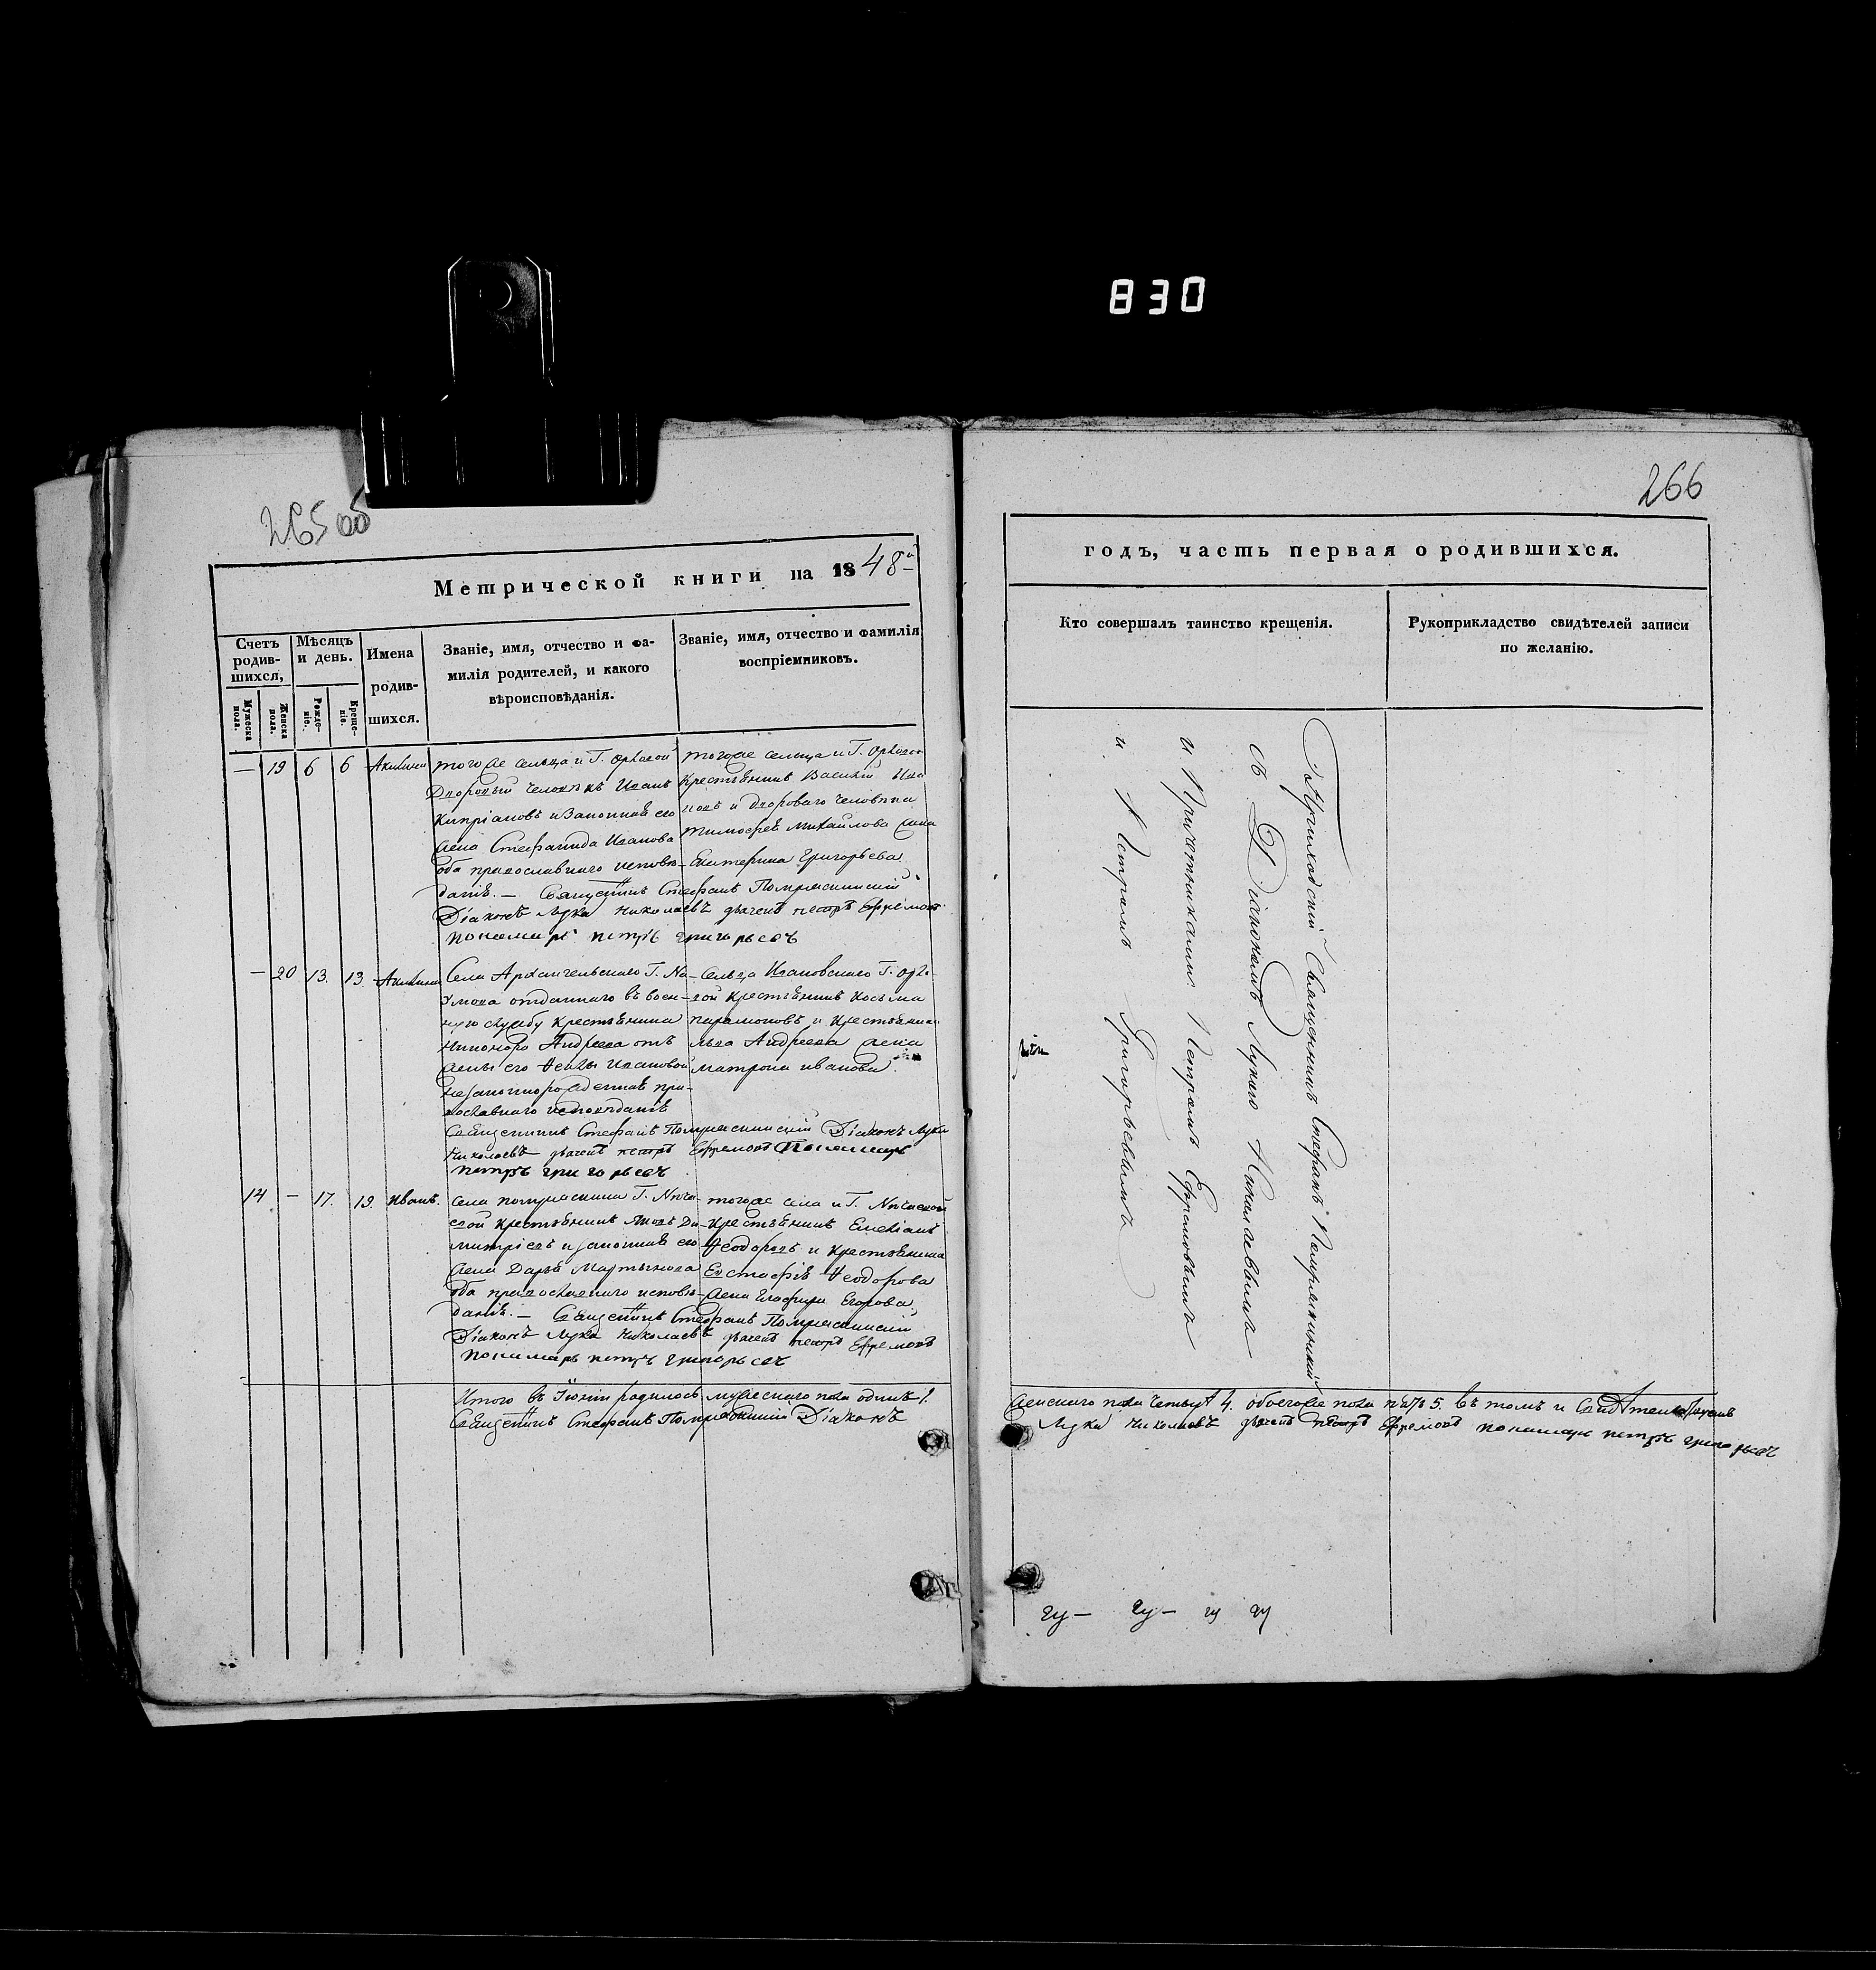 830
265 об
266
Метрической книги на 1848й
годъ, часть первая о родившихся.
Счетъ родив-шихся,
Мужеска пола.
Женска пола.
Мѣсяцъ и день.
Рожде-ніе.
Креще-ніе.
Имена родив-шихся.
Званіе, имя, отчество и фа-
милія родителей, и какого
вѣроисповѣданія.
Званіе, имя, отчество и фамилія
воспріемниковъ.
Кто совершалъ таинство крещенія.
Рукоприкладство свидѣтелей записи
по желанію.
— 19 6 6 Акилина
тогоже сельца и Г. Орловой
Дворовый человѣкъ Иванъ
Кипріановъ и Законная его
жена Стефанида Иванова
оба православнаго исповѣ-
данія. — Священникъ Стефанъ
Діаконъ Лука Николаевъ дьячекъ петръ Ефремовъ
пономарь петръ григорьевъ
тогоже сельца и Г. Орловой
Крестьянинъ Василій
и двороваго человѣка
Тимофея Михайлова жена
Екатерина Григорьева
— 20 13. 13. Акилина
Села Архангельскаго Г. На-
умова отданнаго въ воен-
ную службу крестьянина
Никифора Андреева отъ
жены его Феклы Ивановой
незаконнорожденная пра-
вославнаго исповѣданія
Священникъ Стефанъ Діаконъ Лука
Николаевъ дьячекъ петръ Ефремовъ Пономарь
петръ григорьевъ
Сельца Ивановскаго Г. Орло-
вой Крестьянинъ Косьма
парамоновъ и Крестьянина
Андреева жена
матрона иванова.
14 — 17. 19. Иванъ.
Села
крестьянинъ Яковъ Ди-
митріевъ и законная его
жена Дарья Мартынова
оба православнаго исповѣ-
данія. — Священникъ Стефанъ
Діаконъ Лука Николаевъ дьячекъ петръ Ефремовъ
пономарь петръ григорьевъ
тогоже села и Г.
крестьянинъ Емеліанъ
Феодоровъ и крестьянина
Евстафія Феодорова
жена Глафира Егорова
Итого въ Іюнѣ родилось мужескаго пола одинъ 1.
Священникъ Стефанъ Діаконъ
женскаго пола четыре 4. обоегоже пола пять 5. въ томъ и
Лука Николаевъ дьячекъ петръ Ефремовъ пономарь петръ григорьевъ
Приходскій Священникъ Стефанъ
съ Діакономъ Лукою Николаевымъ
и Причетниками Петромъ Ефремовымъ
и Петромъ Григорьевымъ